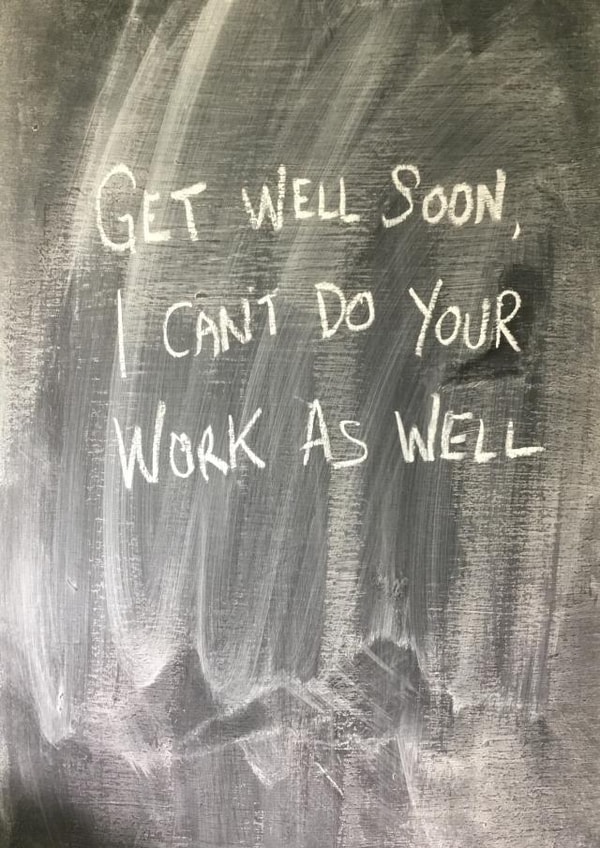 GET WELL SOON,
I CAN'T DO YOUR
WORK AS WELL